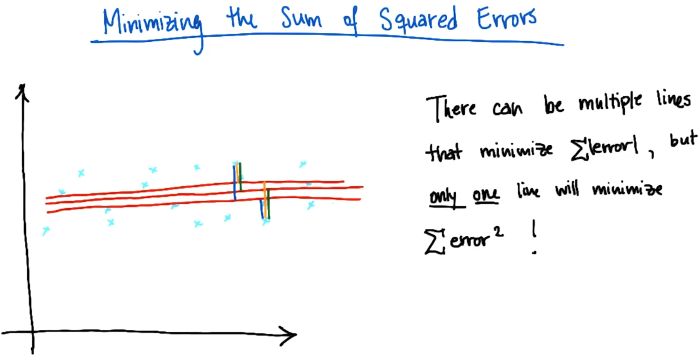 Minimizing the Sum of Squared Errors
There can be multiple lines
that minimize Σ|error|, but
only one line will minimize
Σerror² !